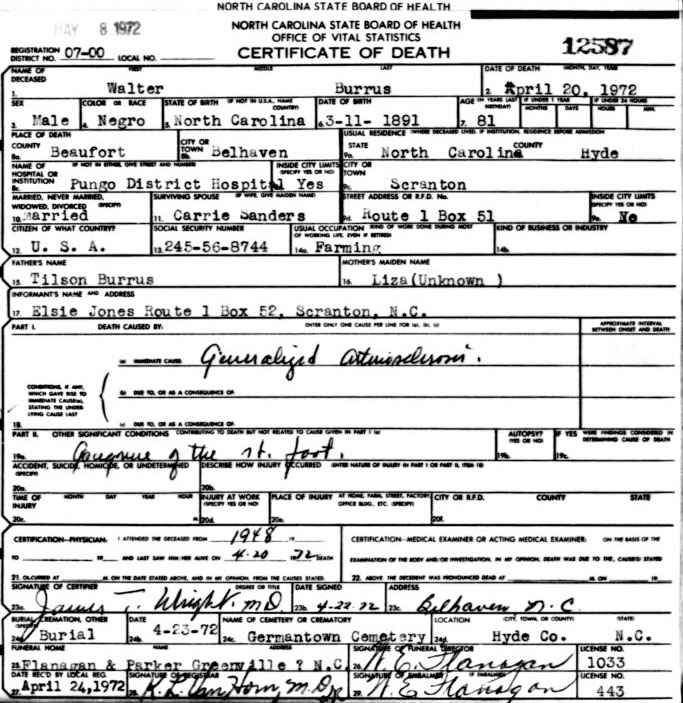 NORTH CAROLINA STATE BOARD OF HEALTH
MAY 8 1972
NORTH CAROLINA STATE BOARD OF HEALTH
OFFICE OF VITAL STATISTICS
REGISTRATION DISTRICT NO. 07-00 LOCAL NO. CERTIFICATE OF DEATH 12587
NAME OF DECEASED FIRST MIDDLE LAST DATE OF DEATH (MONTH, DAY, YEAR)
1. Walter Burrus 2. April 20, 1972
SEX COLOR OR RACE STATE OF BIRTH (IF NOT IN U.S.A., NAME COUNTRY) DATE OF BIRTH AGE (IN YEARS LAST BIRTHDAY) IF UNDER 1 YEAR IF UNDER 24 HOURS
MONTHS DAYS HOURS MIN.
3. Male 4. Negro 5. North Carolina 6. 3-11-1891 7. 81
PLACE OF DEATH USUAL RESIDENCE (WHERE DECEASED LIVED, IF INSTITUTION, RESIDENCE BEFORE ADMISSION)
COUNTY CITY OR TOWN STATE COUNTY
8a. Beaufort 8b. Belhaven 9a. North Carolina Hyde
NAME OF HOSPITAL OR INSTITUTION (IF NOT IN EITHER, GIVE STREET AND NUMBER) INSIDE CITY LIMITS (SPECIFY YES OR NO) CITY OR TOWN
8c. Pungo District Hospital Yes 9c. Scranton
MARRIED, NEVER MARRIED, WIDOWED, DIVORCED (SPECIFY) SURVIVING SPOUSE (IF WIFE, GIVE MAIDEN NAME) STREET ADDRESS OR R.F.D. NO. INSIDE CITY LIMITS (SPECIFY YES OR NO)
10. Married 11. Carrie Sanders 9d. Route 1 Box 51 9e. No
CITIZEN OF WHAT COUNTRY? SOCIAL SECURITY NUMBER USUAL OCCUPATION (KIND OF WORK DONE DURING MOST OF WORKING LIFE, EVEN IF RETIRED) KIND OF BUSINESS OR INDUSTRY
12. U. S. A. 13. 245-56-8744 14a. Farming 14b.
FATHER'S NAME MOTHER'S MAIDEN NAME
15. Tilson Burrus 16. Liza(Unknown )
INFORMANT'S NAME AND ADDRESS
17. Elsie Jones Route 1 Box 52, Scranton, N.C.
PART I. DEATH CAUSED BY: ENTER ONLY ONE CAUSE PER LINE FOR (a), (b), (c) APPROXIMATE INTERVAL BETWEEN ONSET AND DEATH
(a) IMMEDIATE CAUSE Generalized arteriosclerosis.
CONDITIONS, IF ANY, WHICH GAVE RISE TO IMMEDIATE CAUSE(a), STATING THE UNDERLYING CAUSE LAST
(b) DUE TO, OR AS A CONSEQUENCE OF:
18. (c) DUE TO, OR AS A CONSEQUENCE OF:
PART II. OTHER SIGNIFICANT CONDITIONS CONTRIBUTING TO DEATH BUT NOT RELATED TO CAUSE GIVEN IN PART I (a) AUTOPSY? (YES OR NO) IF YES WERE FINDINGS CONSIDERED IN DETERMINING CAUSE OF DEATH
19a. Gangrene of the rt. foot. 19b. 19c.
ACCIDENT, SUICIDE, HOMICIDE, OR UNDETERMINED (SPECIFY) DESCRIBE HOW INJURY OCCURRED (ENTER NATURE OF INJURY IN PART I OR PART II, ITEM 18)
20a. 20b.
TIME OF INJURY MONTH DAY YEAR HOUR INJURY AT WORK (SPECIFY YES OR NO) PLACE OF INJURY AT HOME, FARM, STREET, FACTORY, OFFICE BLDG., ETC. (SPECIFY) CITY OR R.F.D. COUNTY STATE
20c. 20d. 20e. 20f.
CERTIFICATION—PHYSICIAN: I ATTENDED THE DECEASED FROM 1948 19 CERTIFICATION—MEDICAL EXAMINER OR ACTING MEDICAL EXAMINER: ON THE BASIS OF THE
TO 19 AND LAST SAW HIM/HER ALIVE ON 4-20 1972 DEATH EXAMINATION OF THE BODY AND/OR INVESTIGATION, IN MY OPINION, DEATH WAS DUE TO THE, CAUSE(S) STATED
21. OCCURRED AT M. ON THE DATE STATED ABOVE, AND IN MY OPINION, FROM THE CAUSES STATED. 22. ABOVE. THE DECEDENT WAS PRONOUNCED DEAD AT M. ON 19
SIGNATURE OF CERTIFIER DEGREE OR TITLE DATE SIGNED ADDRESS
23a. James T. Wright. M.D 23b. 4-22-72 23c. Belhaven N.C.
BURIAL, CREMATION, OTHER DATE NAME OF CEMETERY OR CREMATORY LOCATION (CITY, TOWN, OR COUNTY) (STATE)
24a. Burial 24b. 4-23-72 24c. Germantown Cemetery 24d. Hyde Co. N.C.
FUNERAL HOME ADDRESS SIGNATURE OF FUNERAL DIRECTOR LICENSE NO.
25. Flanagan & Parker Greenville ? N.C. 26. W. E. Flanagan 1033
DATE REC'D BY LOCAL REG. SIGNATURE OF REGISTRAR SIGNATURE OF EMBALMER IF EMBALMED LICENSE NO.
27. April 24,1972 28. R. L. Van Horn, M.D. 29. W. E Flanagan 443